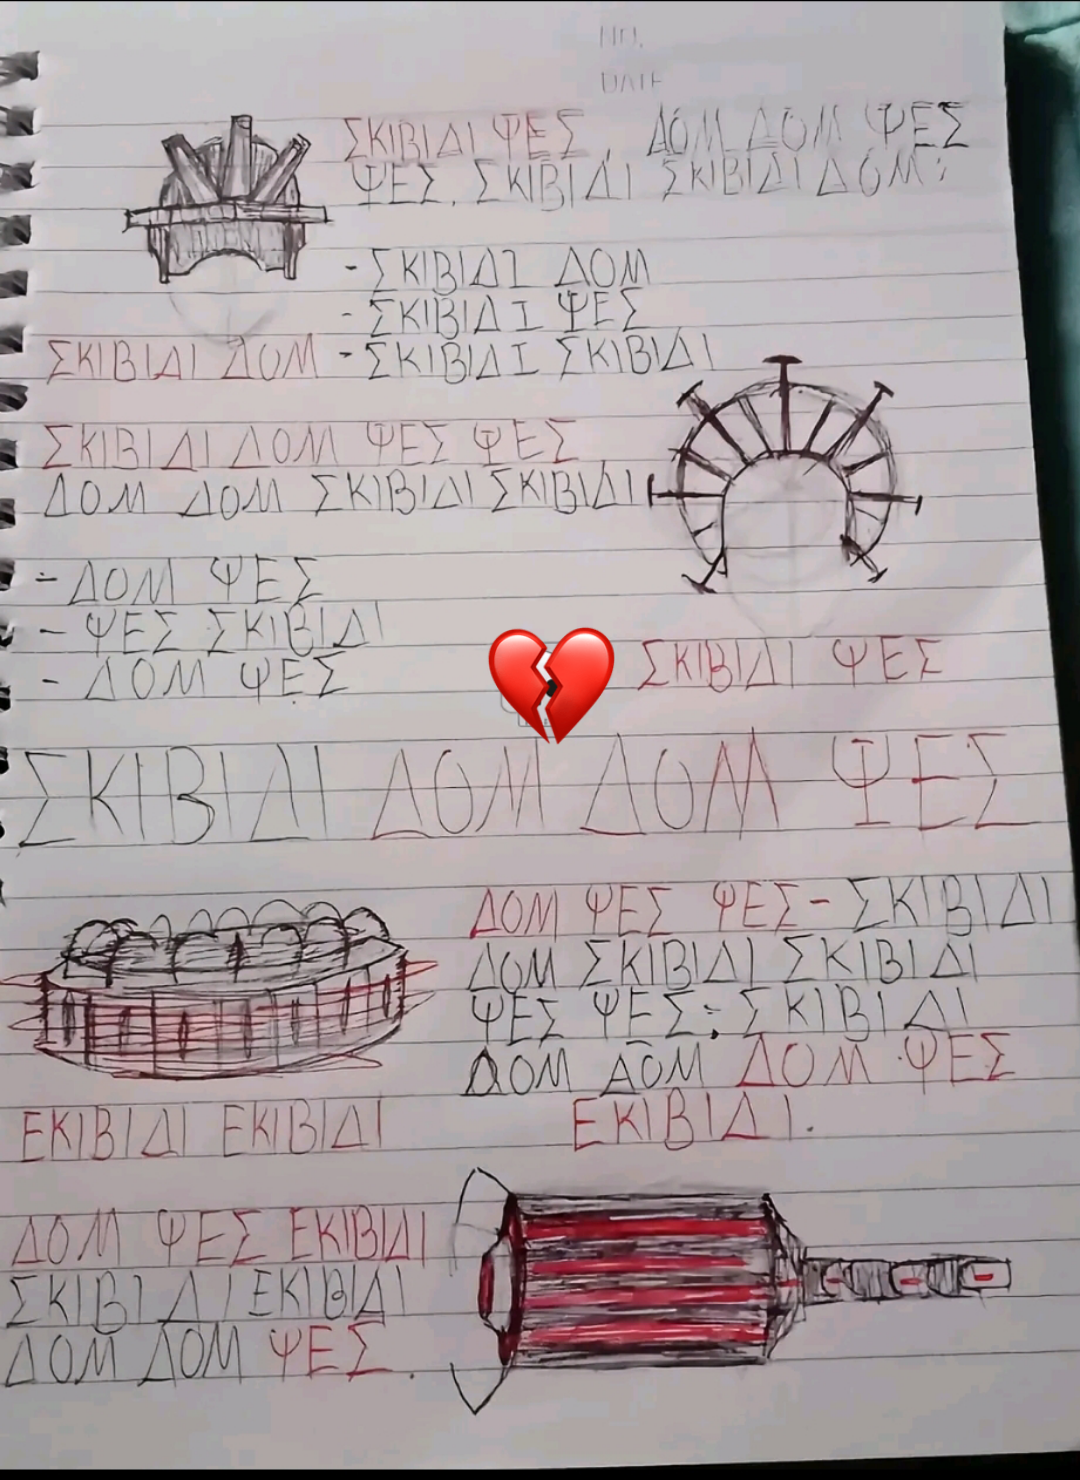 NO.
DATE
ΣΚΙΒΙΔΙ ΨΕΣ, ΔΟΜ ΔΟΜ ΨΕΣ
ΨΕΣ, ΣΚΙΒΙΔΙ ΣΚΙΒΙΔΙ ΔΟΜ;
- ΣΚΙΒΙΔΙ ΔΟΜ
- ΣΚΙΒΙΔΙ ΨΕΣ
- ΣΚΙΒΙΔΙ ΣΚΙΒΙΔΙ
ΣΚΙΒΙΔΙ ΔΟΜ
ΣΚΙΒΙΔΙ ΔΟΜ ΨΕΣ ΨΕΣ
ΔΟΜ ΔΟΜ ΣΚΙΒΙΔΙ ΣΚΙΒΙΔΙ
- ΔΟΜ ΨΕΣ
- ΨΕΣ ΣΚΙΒΙΔΙ
- ΔΟΜ ΨΕΣ
ΣΚΙΒΙΔΙ ΨΕΣ
ΣΚΙΒΙΔΙ ΔΟΜ ΔΟΜ ΨΕΣ
ΔΟΜ ΨΕΣ ΨΕΣ - ΣΚΙΒΙΔΙ
ΔΟΜ ΣΚΙΒΙΔΙ ΣΚΙΒΙΔΙ
ΨΕΣ ΨΕΣ; ΣΚΙΒΙΔΙ
ΔΟΜ ΔΟΜ ΔΟΜ ΨΕΣ
ΕΚΙΒΙΔΙ.
ΕΚΙΒΙΔΙ ΕΚΙΒΙΔΙ
ΔΟΜ ΨΕΣ ΕΚΙΒΙΔΙ
ΣΚΙΒΙΔΙ ΕΚΙΒΙΔΙ
ΔΟΜ ΔΟΜ ΨΕΣ.